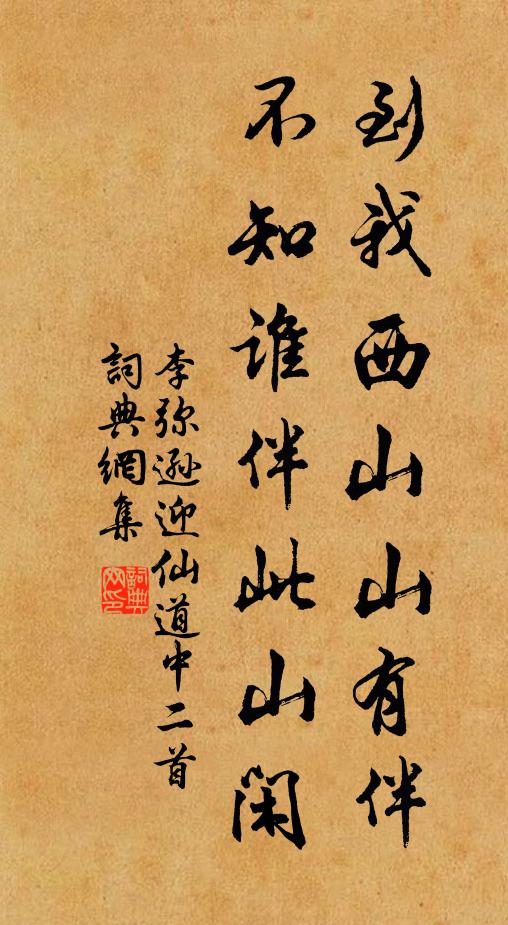 到我西山山有伴
不知谁伴此山闲
李弥逊迎仙道中二首
詞典網集
詞典网印